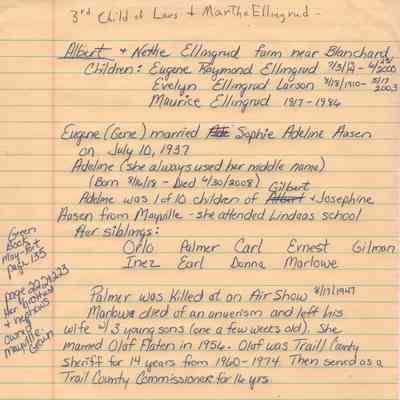 3rd Child of Lars + Martha Ellingrud -
Albert + Nettie Ellingrud farm near Blanchard
Children: Eugene Raymond Ellingrud
Evelyn Ellingrud Larson 2003
Maurice Ellingrud 1917-1984
Eugene (Gene) married Sophie Adeline Aasen
on July 10, 1937
Adeline (she always used her middle name)
(Born 8/16/18 - Died 4/30/2008) Gilbert
Adeline was 1 of 10 children of Albert + Josephine
Aasen from Mayville - she attended Lindaas school
Her siblings:
Orlo Palmer Carl Ernest Gilman
Inez Earl Donna Marlowe
Green
Book
May-Port
page 135
page 222+223
Her brothers
+ nephews
owned
Mayville
Grain
Palmer was Killed at an Air Show 8/17/1947
Marlowe died of an anuerism and left his
wife w/ 3 young sons (one a few weeks old). She
married Olaf Flaten in 1956. Olaf was Traill County
sheriff for 14 years from 1960-1974. Then served as a
Trail County Commissioner for 16 yrs